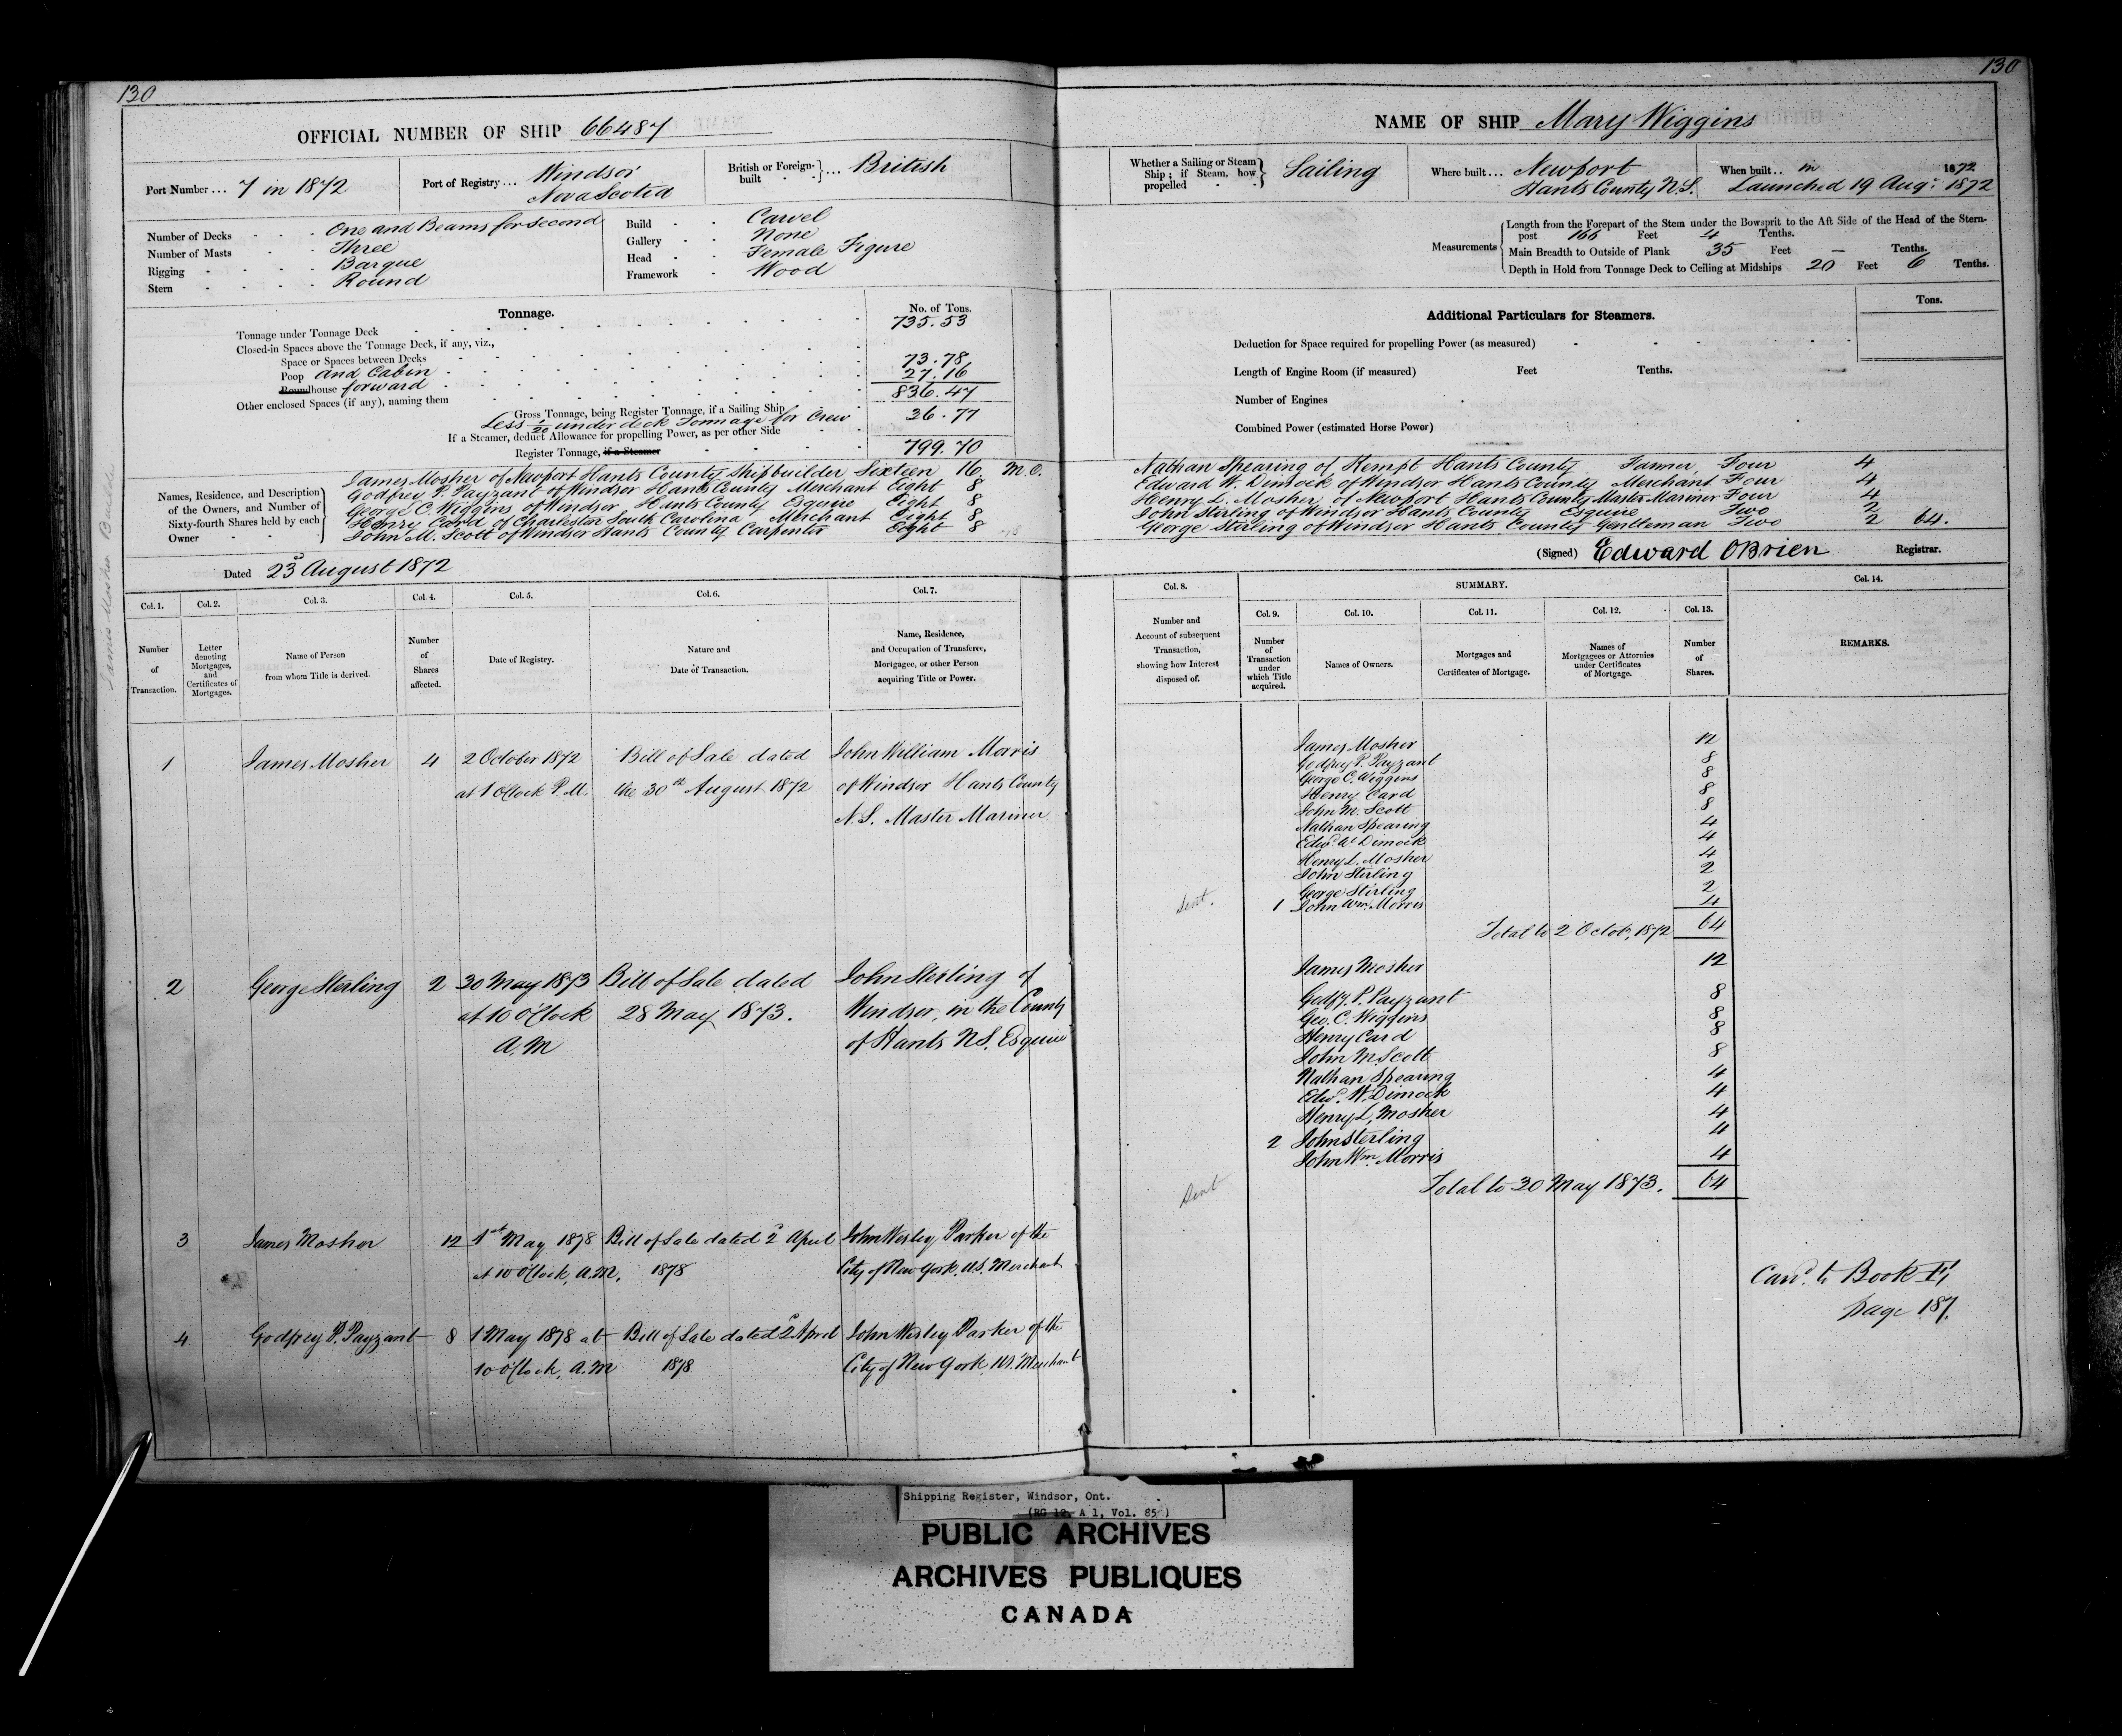 130
OFFICIAL NUMBER OF SHIP 66487
Port Number ... 7 in 1872
Port of Registry ... Windsor
Nova Scotia
British or Foreign-built } ... British
Number of Decks One and Beams for Second
Number of Masts Three
Rigging Barque
Stern Round
Build Carvel
Gallery None
Head Female Figure
Framework Wood
Tonnage.
No. of Tons.
Tonnage under Tonnage Deck 735.53
Closed-in Spaces above the Tonnage Deck, if any, viz.,
Space or Spaces between Decks
Poop and Cabin 73.78
Roundhouse forward 27.16
Other enclosed Spaces (if any), naming them
Gross Tonnage, being Register Tonnage, if a Sailing Ship 836.47
Less 1/20 under deck Tonnage for Crew 36.77
If a Steamer, deduct Allowance for propelling Power, as per other Side
Register Tonnage, if a Steamer 799.70
Names, Residence, and Description of the Owners, and Number of Sixty-fourth Shares held by each Owner
James Mosher of Newport Hants County Shipbuilder Sixteen 16 M.O.
Godfrey P. Payzant of Windsor Hants County Merchant Eight 8
George C. Wiggins of Windsor Hants County Esquire Eight 8
Henry Card of Charleston South Carolina Merchant Eight 8
John M. Scott of Windsor Hants County Carpenter Eight 8
Dated 23 August 1872
Col. 1. Col. 2. Col. 3. Col. 4. Col. 5. Col. 6. Col. 7.
Number of Transaction.
Letter denoting Mortgages, and Certificates of Mortgages.
Name of Person from whom Title is derived.
Number of Shares affected.
Date of Registry.
Nature and Date of Transaction.
Name, Residence, and Occupation of Transferee, Mortgagee, or other Person acquiring Title or Power.
1 James Mosher 4 2 October 1872 Bill of Sale dated John William Morris
at 1 oClock P.M. the 30th August 1872 of Windsor Hants County
N.S. Master Mariner
2 George Sterling 2 30 May 1873 Bill of Sale dated John Sterling of
at 10 o'Clock 28 May 1873. Windsor, in the County
A.M of Hants N.S. Esquire
3 James Mosher 12 1st May 1878 Bill of Sale dated 2d April John Wesley Parker of the
at 10 o'Clock, A.M. 1878 City of New York, U.S. Merchant
4 Godfrey P. Payzant 8 1 May 1878 at Bill of Sale dated 2d April John Wesley Parker of the
10 o'Clock, A.M 1878 City of New York, U.S. Merchant
130
NAME OF SHIP Mary Wiggins
Whether a Sailing or Steam Ship; if Steam, how propelled } Sailing
Where built ... Newport
Hants County N.S.
When built .. in 1872
Launched 19 Aug: 1872
Measurements
Length from the Forepart of the Stem under the Bowsprit to the Aft Side of the Head of the Stern-
post 166 Feet 4 Tenths.
Main Breadth to Outside of Plank 35 Feet — Tenths.
Depth in Hold from Tonnage Deck to Ceiling at Midships 20 Feet 6 Tenths.
Tons.
Additional Particulars for Steamers.
Deduction for Space required for propelling Power (as measured)
Length of Engine Room (if measured) Feet Tenths.
Number of Engines
Combined Power (estimated Horse Power)
Nathan Spearing of Kempt Hants County Farmer, Four 4
Edward W. Dimock of Windsor Hants County Merchant Four 4
Henry L. Mosher of Newport Hants County Master Mariner Four 4
John Stirling of Windsor Hants County Esquire Two 2
George Stirling of Windsor Hants County Gentleman Two 2 64.
(Signed) Edward OBrien Registrar.
Col. 8. SUMMARY. Col. 14.
Col. 9. Col. 10. Col. 11. Col. 12. Col. 13.
Number and Account of subsequent Transaction, showing how Interest disposed of.
Number of Transaction under which Title acquired.
Names of Owners.
Mortgages and Certificates of Mortgage.
Names of Mortgagees or Attornies under Certificates of Mortgage.
Number of Shares.
REMARKS.
James Mosher 12
Godfrey P. Payzant 8
George C. Wiggins 8
Henry Card 8
John M. Scott 8
Nathan Spearing 4
Edwd. W Dimock 4
Henry L. Mosher 4
John Stirling 2
George Stirling 2
Sent. 1 John Wm. Morris 4
Total to 2 Octob, 1872 64
James Mosher 12
Godfy. P. Payzant 8
Geo. C. Wiggins 8
Henry Card 8
John M Scott 8
Nathan Spearing 4
Edwd. W. Dimock 4
Henry L. Mosher 4
2 John Sterling 4
John Wm. Morris 4
Sent Total to 30 May 1873. 64
Card. to Book
page 187.
Shipping Register, Windsor, Ont.
(RG 12, A 1, Vol. 85)
PUBLIC ARCHIVES
ARCHIVES PUBLIQUES
CANADA